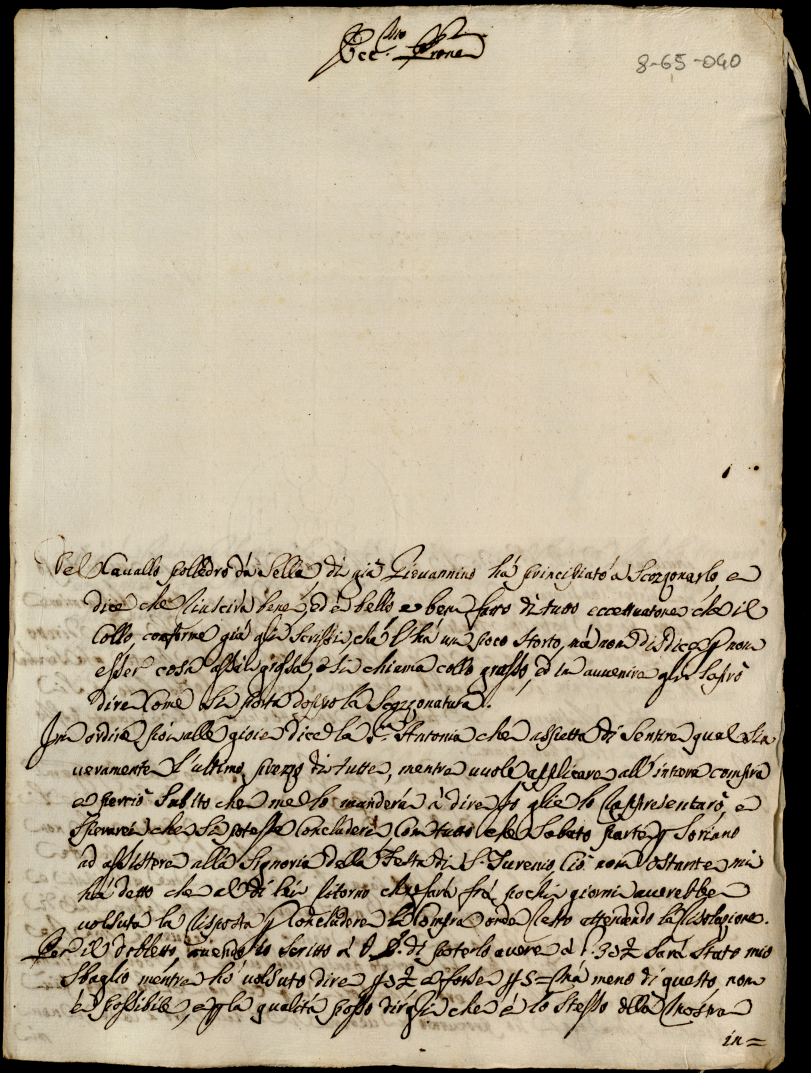 Ecc.mo Prone
8-65-040
Del Cauallo polledro da Sella, di già Giouannino hà principiato à Scozzonarlo, e
dice che riuscirà bene, ed è bello e ben fatto di tutto eccettuatone che il
Collo, conforme già gli Scrissi, che l'hà un poco storto, mà non disdice p non
esser cosa assai grossa, e si chiama collo grasso, ed in auuenire gli saprò
dire come si porta doppo la Scozzonatura.
In ordine poi alle gioie dice la S.ra Antonia che aspetta di sentire quel Sin
ueramente l'ultimo prezzo di tutte, mentre uuole applicare all'intera compra
e perciò Subito che me lo manderà à dire Io glie lo rappresentarò, e
Sperarei che si potesse Concludere Con tutto che Sabato parte p Soriano
ad assistere alla Signoria della Festa di S. Iuuenio Ciò non Ostante mi
hà detto che al di lei ritorno che farà frà pochi giorni auerebbe
uoluta la risposta p Concludere la Compra onde resto attendendo la risolazione.
Per il dobletto, auendo io scritto à V. E. di poterlo auere à 35 Sarà Stato mio
Sbaglio mentre hò uolsuto dire 52 e forse 5= mà meno di questo, non
è possibile, e p la qualità posso dirgli che è lo Stesso della mostra
in=